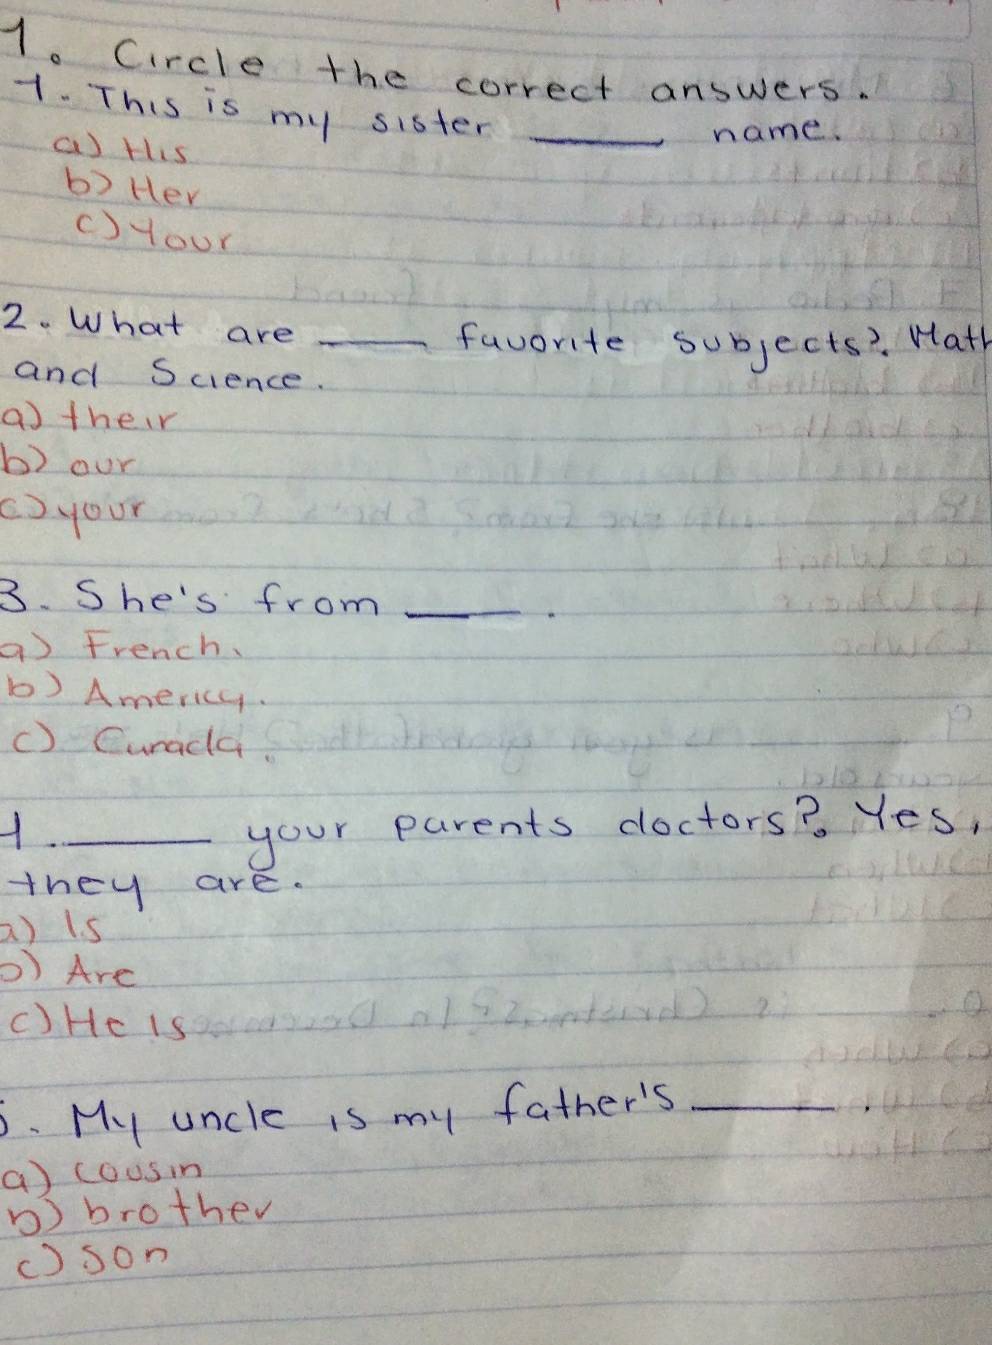 1. Circle the correct answers.
1. This is my sister ____ name.
a) His
b) Her
c) Your
2. What are ____ favorite subjects? Math
and Science.
a) their
b) our
c) your
3. She's from ____.
a) French.
b) Americcy.
c) Canada.
4. ____ your parents doctors? Yes,
they are.
a) Is
b) Are
c) He is
5. My uncle is my father's ____.
a) cousin
b) brother
c) son